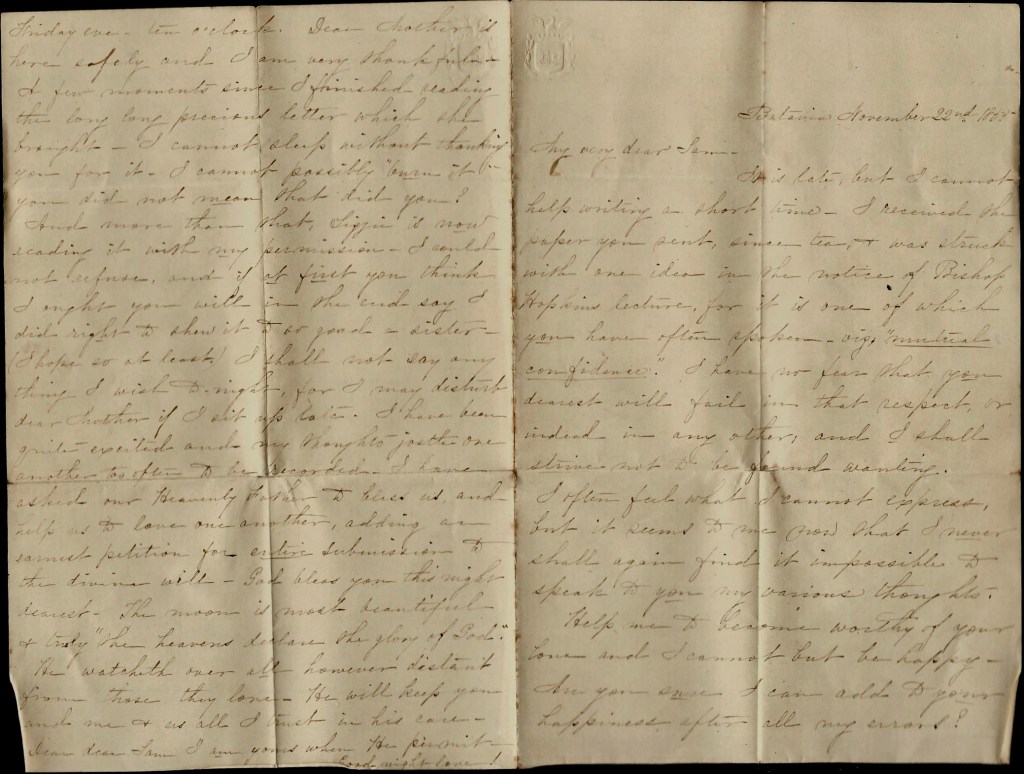 Batavia November 22nd. 1855
My very dear Sam -
It is late, but I cannot
help writing a short time - I received the
paper you sent, since tea, & was struck
with one idea in the notice of Bishop
Hopkins lecture, for it is one of which
you have often spoken - viz, "mutual
confidence". I have no fear that you
dearest will fail in that respect, or
indeed in any other; and I shall
strive not to be found wanting.
I often feel what I cannot express,
but it seems to me now that I never
shall again find it impossible to
speak to you my various thoughts.
Help me to become worthy of your
love and I cannot but be happy -
Are you sure I can add to your
happiness after all my errors?
Friday eve - ten o'clock. Dear Mother is
here safely and I am very thankful -
A few moments since I finished reading
the long long precious letter which she
brought - I cannot sleep without thanking
you for it - I cannot possibly "burn it"
you did not mean that did you?
And more than that, Lizzie is now
reading it with my permission - I could
not refuse, and if at first you think
I ought you will in the end say I
did right to shew it to so good a sister -
(I hope so at least) I shall not say any
thing I wish to-night, for I may disturb
dear Mother if I sit up late. I have been
quite excited and my thoughts jostle one
another too often to be recorded - I have
asked our Heavenly Father to bless us, and
help us to love one another, adding an
earnest petition for entire submission to
the divine will - God bless you this night
dearest - The moon is most beautiful
& truly "the heavens declare the glory of God".
He watcheth over all however distant
from those they love - He will keep you
and me & us all I trust in his care -
Dear dear Sam I am yours when He permit -
Good night love!